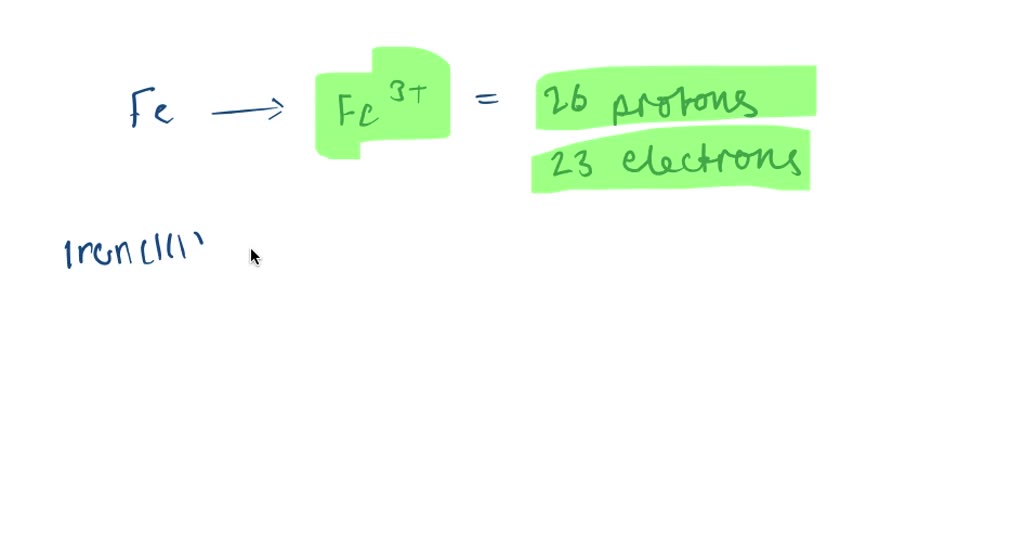 Fe → Fe³⁺ = 26 protons
23 electrons
Iron(III)